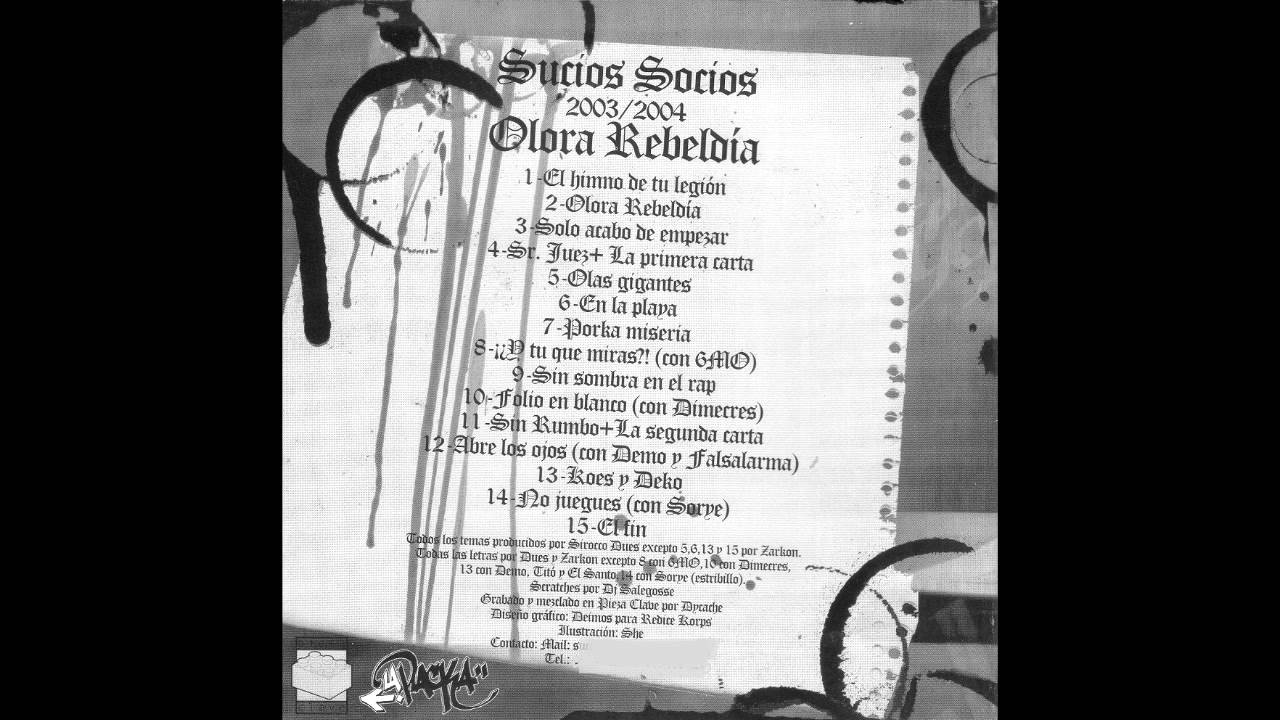 Sucios Socios
2003/2004
Olora Rebeldía
1-El himno de tu legión
2-Olora Rebeldía
3-Solo acabo de empezar
4-Sr. Juez+ La primera carta
5-Olas gigantes
6-En la playa
7-Porka miseria
8-¡¿Y tu que miras?! (con 6MO)
9-Sin sombra en el rap
10-Folio en blanco (con Dimecres)
11-Sin Rumbo+La segunda carta
12-Abre los ojos (con Demo y Falsalarma)
13-Koes y Deko
14-No juegues (con Sorye)
15-El fin
Todos los temas producidos por Sirocco Dues excepto 5,6,13 y 15 por Zarkon.
Todas las letras por Dues y Zarkon excepto 8 con 6MO,10 con Dimecres,
13 con Demo, Titó y El Santo,14 con Sorye (estribillo).
Scratches por Dj Salegosse
Grabado y mezclado en Pieza Clave por Dycache
Diseño gráfico: Deimos para Redice Korps
Ilustración: She
Contacto: Mail: s
Tel.: